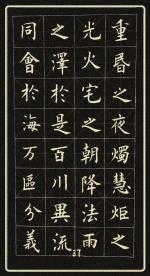 重昏之夜燭慧炬之
光火宅之朝降法雨
之澤於是百川異流
同會於海万區分義
37